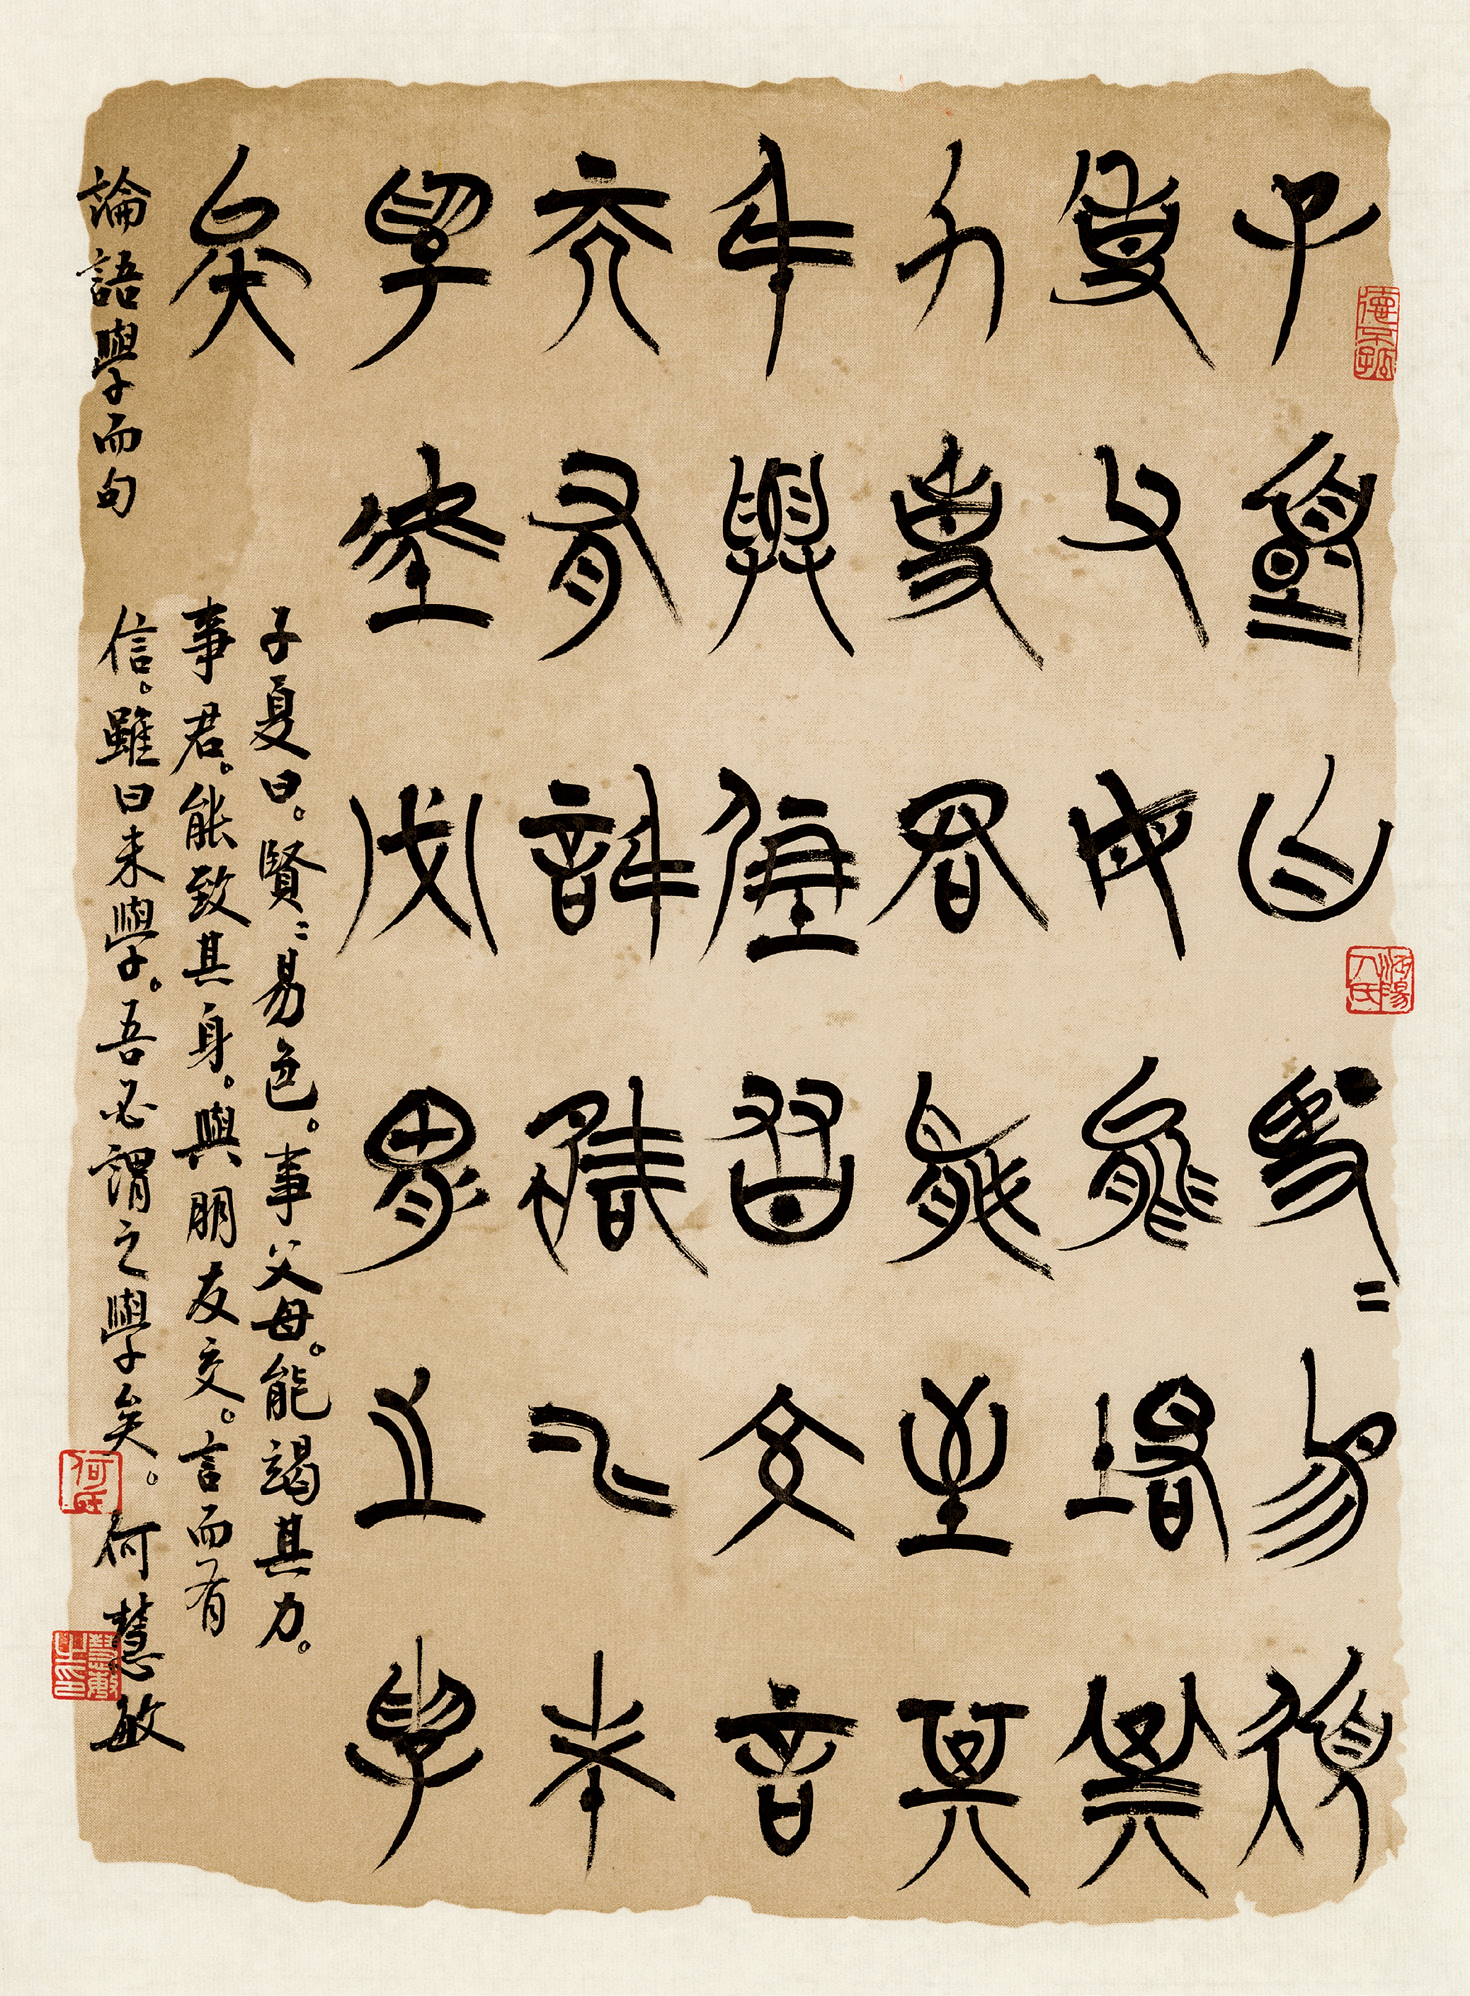 子夏曰賢=易色
事父母能竭其
力事君能致其
身與朋友交言
而有信雖曰未
學吾必謂之學
矣
論語學而句
子夏曰。賢=易色。事父母。能竭其力。
事君。能致其身。與朋友交。言而有
信。雖曰未學。吾必謂之學矣。何慧敏
德不孤
陽人氏
何氏
慧敏之印